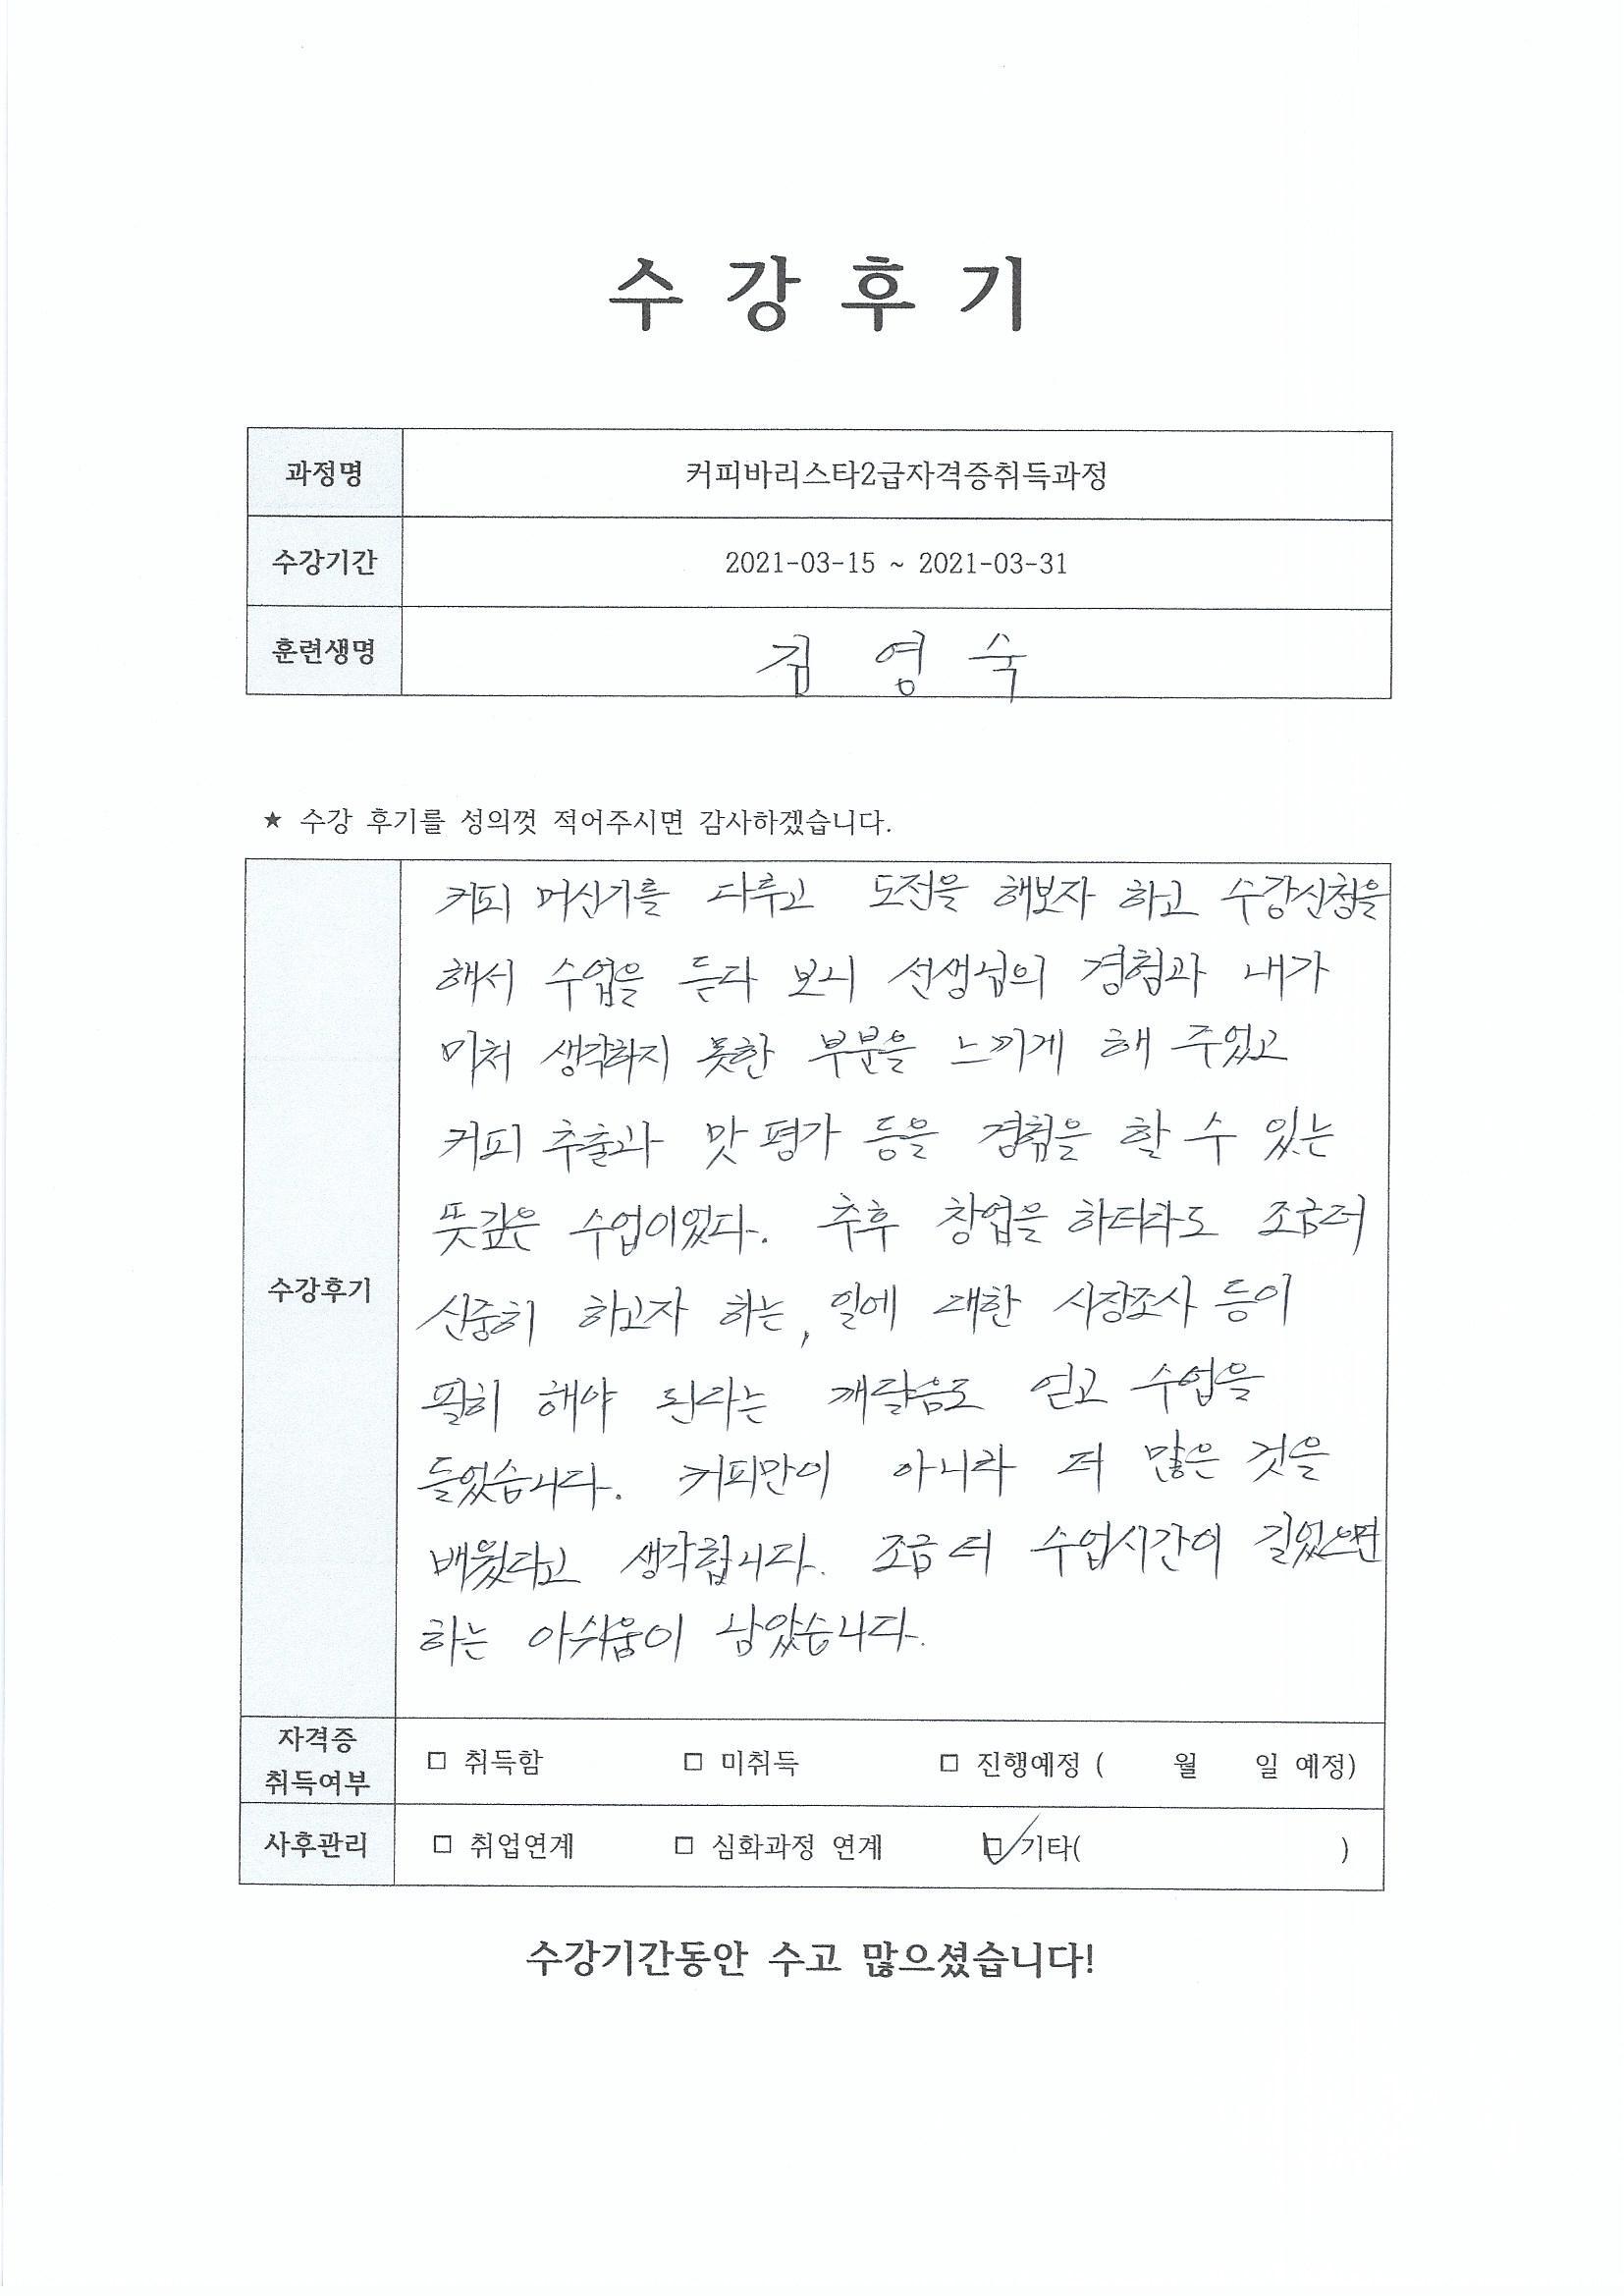 수 강 후 기
과정명 커피바리스타2급자격증취득과정
수강기간 2021-03-15 ~ 2021-03-31
훈련생명 김 영 숙
★ 수강 후기를 성의껏 적어주시면 감사하겠습니다.
수강후기
커피 머신기를 다루고 도전을 해보자 하고 수강신청을
해서 수업을 듣다 보니 선생님의 경험과 내가
미처 생각하지 못한 부분을 느끼게 해 주었고
커피 추출과 맛 평가 등을 경험을 할 수 있는
뜻깊은 수업이었다. 추후 창업을 하더라도 조금더
신중히 하고자 하는, 일에 대한 시장조사 등이
필히 해야 된다는 깨달음도 얻고 수업을
들었습니다. 커피만이 아니라 더 많은 것을
배웠다고 생각합니다. 조금 더 수업시간이 길었으면
하는 아쉬움이 남았습니다.
자격증
취득여부 □ 취득함 □ 미취득 □ 진행예정 ( 월 일 예정)
사후관리 □ 취업연계 □ 심화과정 연계 ☑ 기타( )
수강기간동안 수고 많으셨습니다!